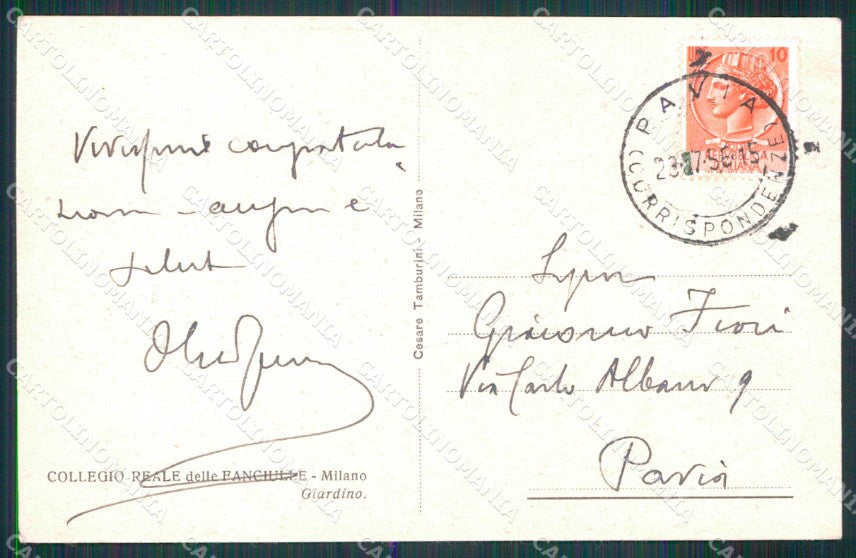 Vivissime congratula
saluti
COLLEGIO REALE delle FANCIULLE - Milano
Giardino.
Cesare Tamburini - Milano
10
PAVIA
23·7·56·15
CORRISPONDENZE
Giacomo Fiori
Via Carlo Albano 9
Pavia
CARTOLINOMANIA